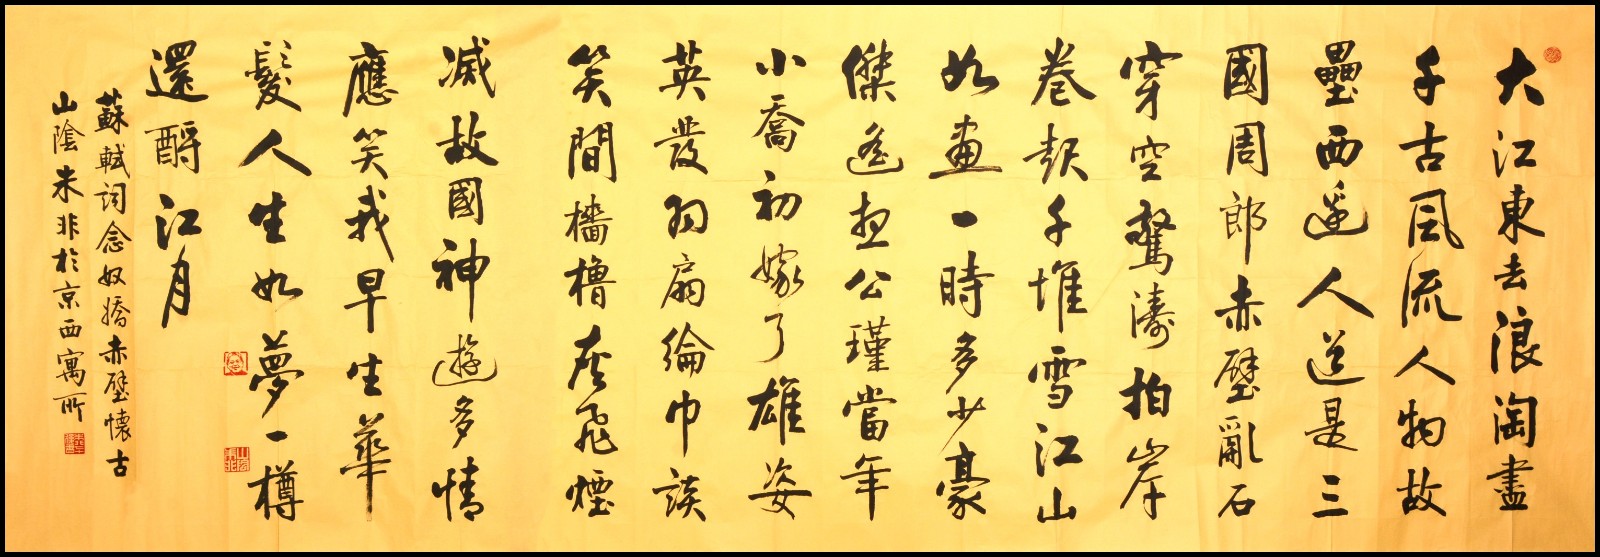 大江東去浪淘盡
千古風流人物故
壘西邊人道是三
國周郎赤壁亂石
穿空驚濤拍岸
卷起千堆雪江山
如畫一時多少豪
傑遙想公瑾當年
小喬初嫁了雄姿
英發羽扇綸巾談
笑間檣櫓灰飛煙
滅故國神遊多情
應笑我早生華
髮人生如夢一樽
還酹江月
蘇軾詞念奴嬌赤壁懷古
山陰朱非於京西寓所